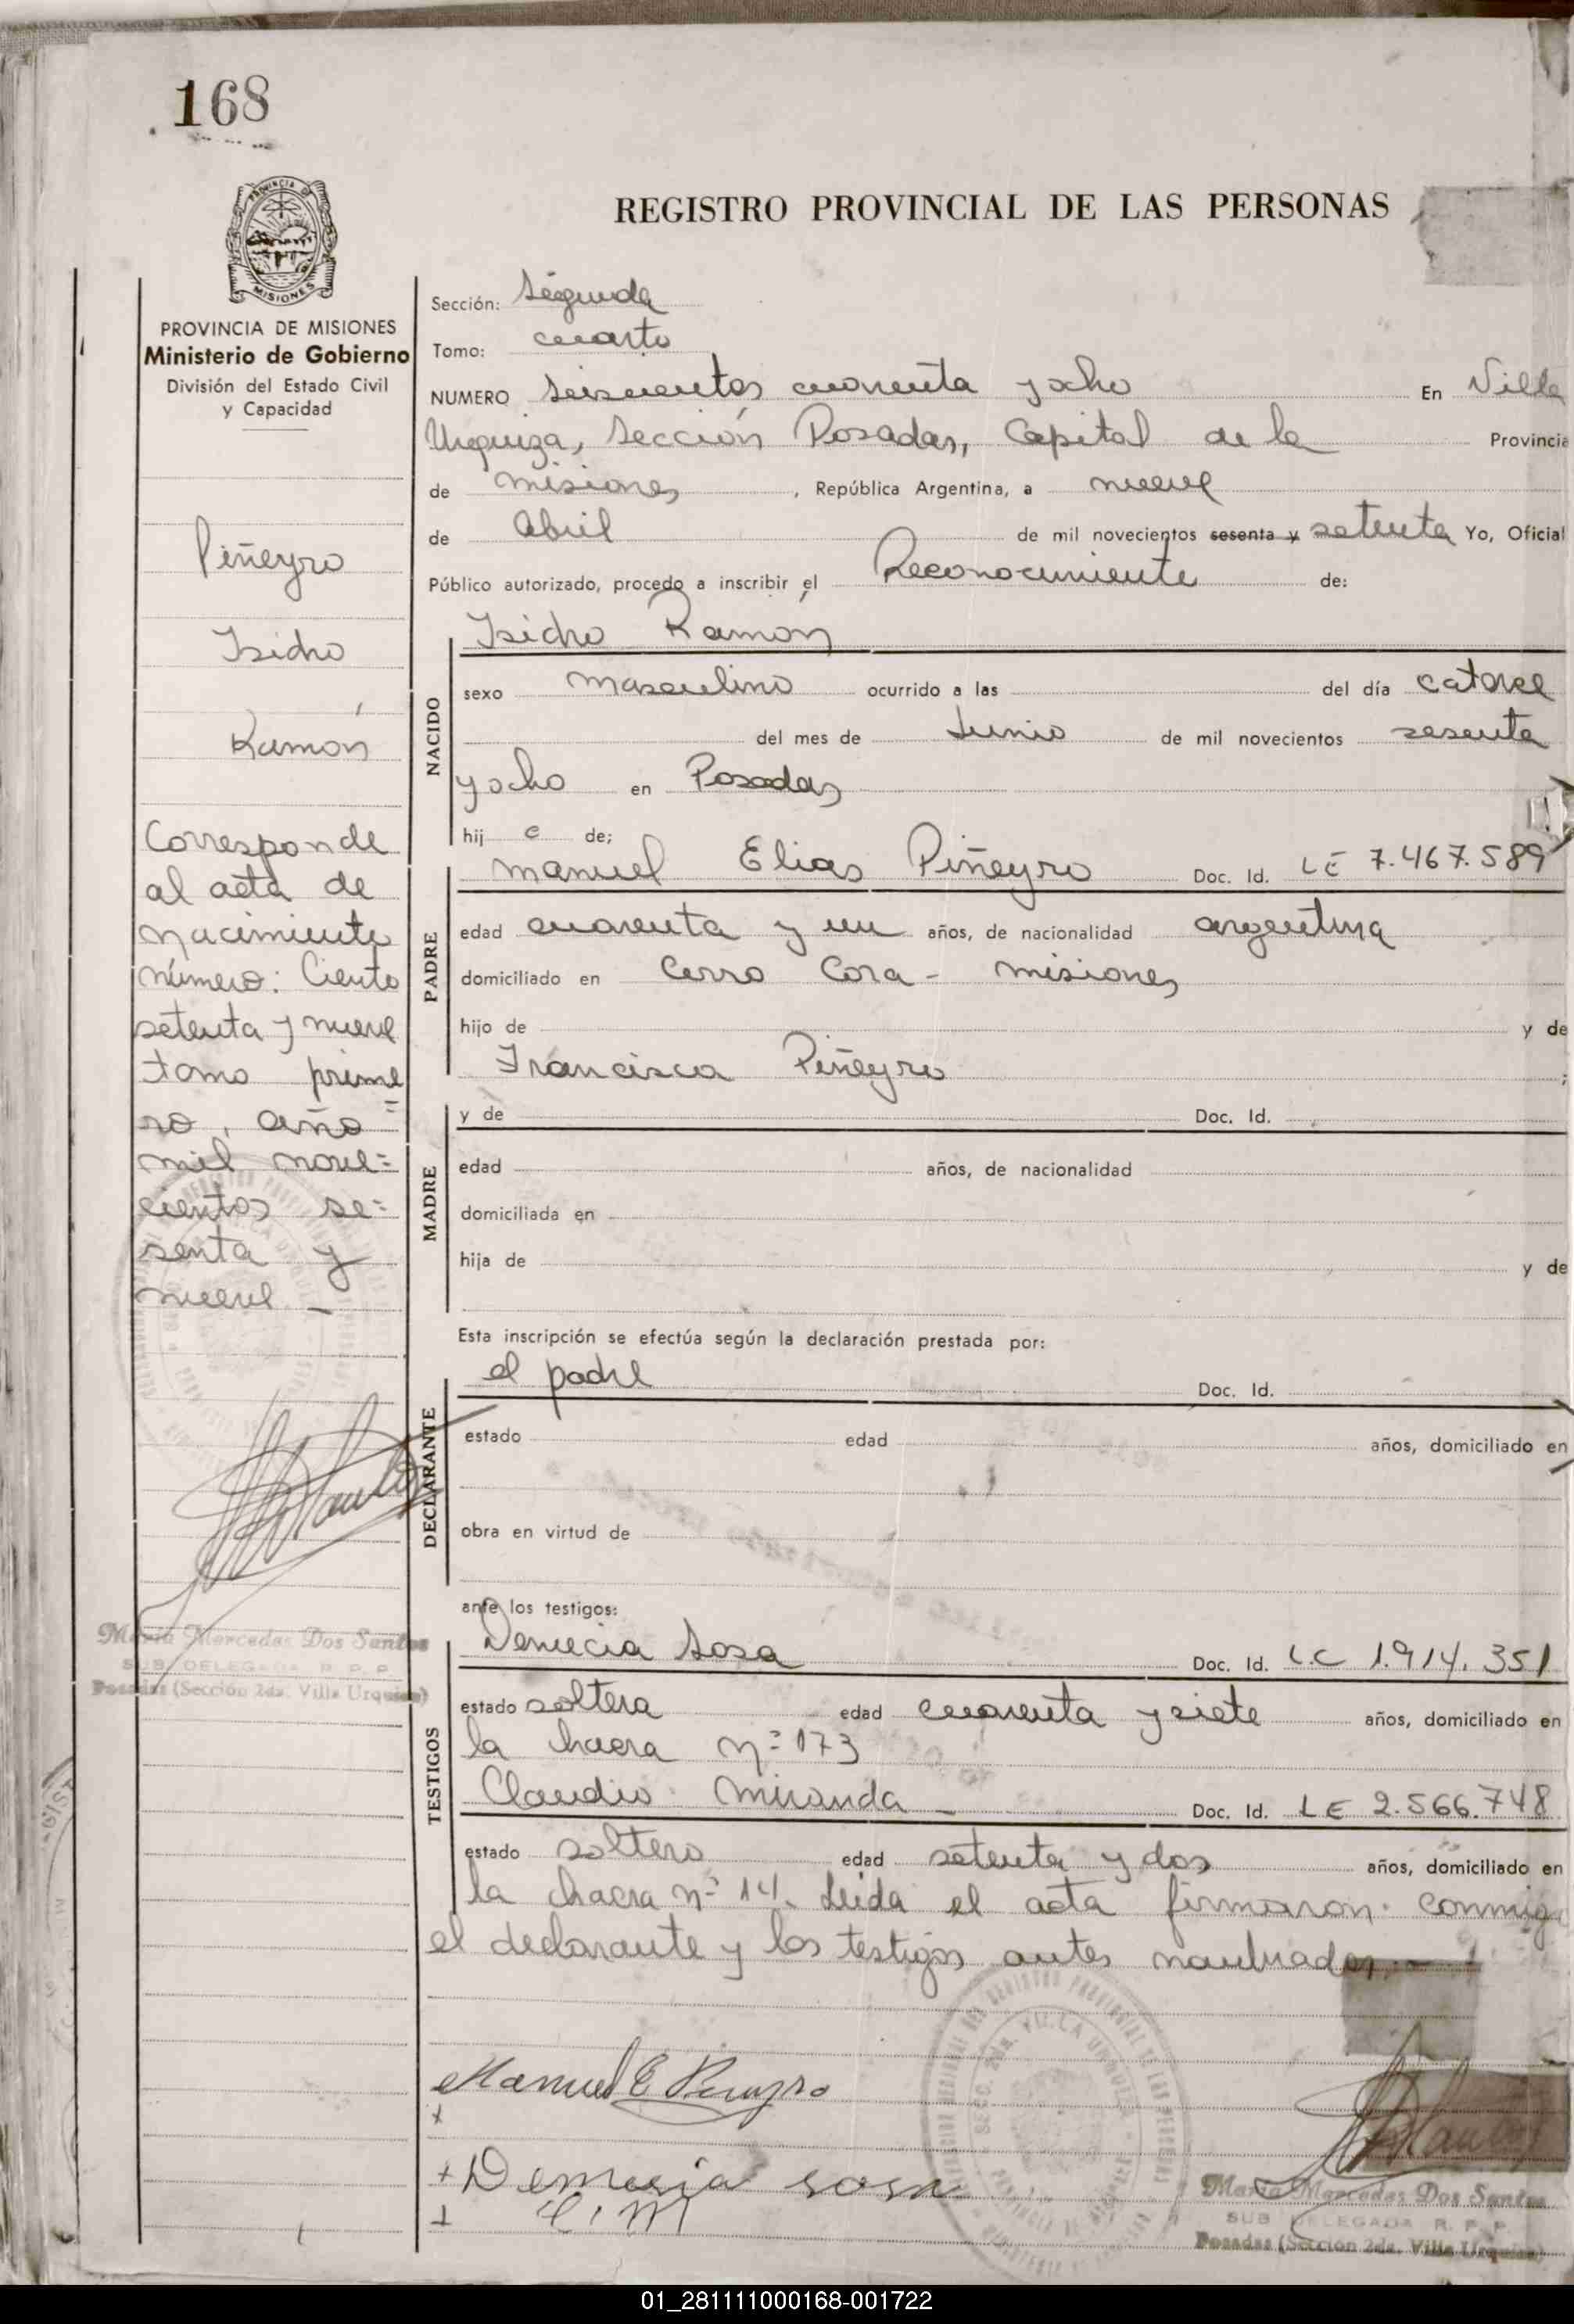 168
REGISTRO PROVINCIAL DE LAS PERSONAS
PROVINCIA DE MISIONES
Ministerio de Gobierno
División del Estado Civil
y Capacidad
Piñeyro
Isidro
Ramón
Corresponde
al acta de
nacimiento
número: Ciento
setenta y nueve
tomo prime
ro, año
mil nove=
cientos se=
senta y
nueve _
Maria Mercedes Dos Santos
SUB DELEGADA R. P. P.
Posadas (Sección 2da. Villa Urquiza)
Sección: Segunda
Tomo: cuarto
NUMERO Seiscientos cuarenta y ocho En Villa
Urquiza, Sección Posadas, Capital de la Provincia
de Misiones, República Argentina, a nueve
de Abril de mil novecientos sesenta y setenta Yo, Oficial
Público autorizado, procedo a inscribir el Reconocimiento de:
Isidro Ramón
NACIDO
sexo masculino ocurrido a las del día catorce
del mes de Junio de mil novecientos sesenta
y ocho en Posadas
hij o de;
Manuel Elias Piñeyro Doc. Id. LE 7.467.589
PADRE
edad cuarenta y un años, de nacionalidad argentina
domiciliado en Cerro Cora - Misiones
hijo de y de
Francisca Piñeyro ;
y de Doc. Id.
MADRE
edad años, de nacionalidad
domiciliada en
hija de y de
Esta inscripción se efectúa según la declaración prestada por:
el padre Doc. Id.
DECLARANTE
estado edad años, domiciliado en
obra en virtud de
ante los testigos:
Demecia Sosa Doc. Id. L.C 1.914.351
TESTIGOS
estado soltera edad cuarenta y siete años, domiciliado en
la chacra nº 173
Claudio Miranda _ Doc. Id. LE 2.566.748
estado soltero edad setenta y dos años, domiciliado en
la chacra nº 14. Leida el acta firmaron conmigo
el declarante y los testigos antes nombrados.-
Manuel E Piñeyro
+ Demesia sosa
C. M
Maria Mercedes Dos Santos
SUB DELEGADA R. P. P.
Posadas (Sección 2da. Villa Urquiza)
01_281111000168-001722